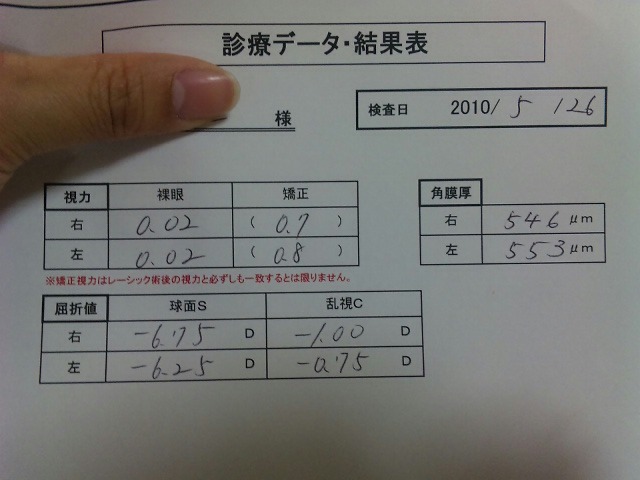 診療データ・結果表
様
検査日 2010/ 5 /26
視力 裸眼 矯正
右 0.02 ( 0.7 )
左 0.02 ( 0.8 )
角膜厚
右 546 μm
左 553 μm
※矯正視力はレーシック術後の視力と必ずしも一致するとは限りません。
屈折値 球面S 乱視C
右 -6.75 D -1.00 D
左 -6.25 D -0.75 D